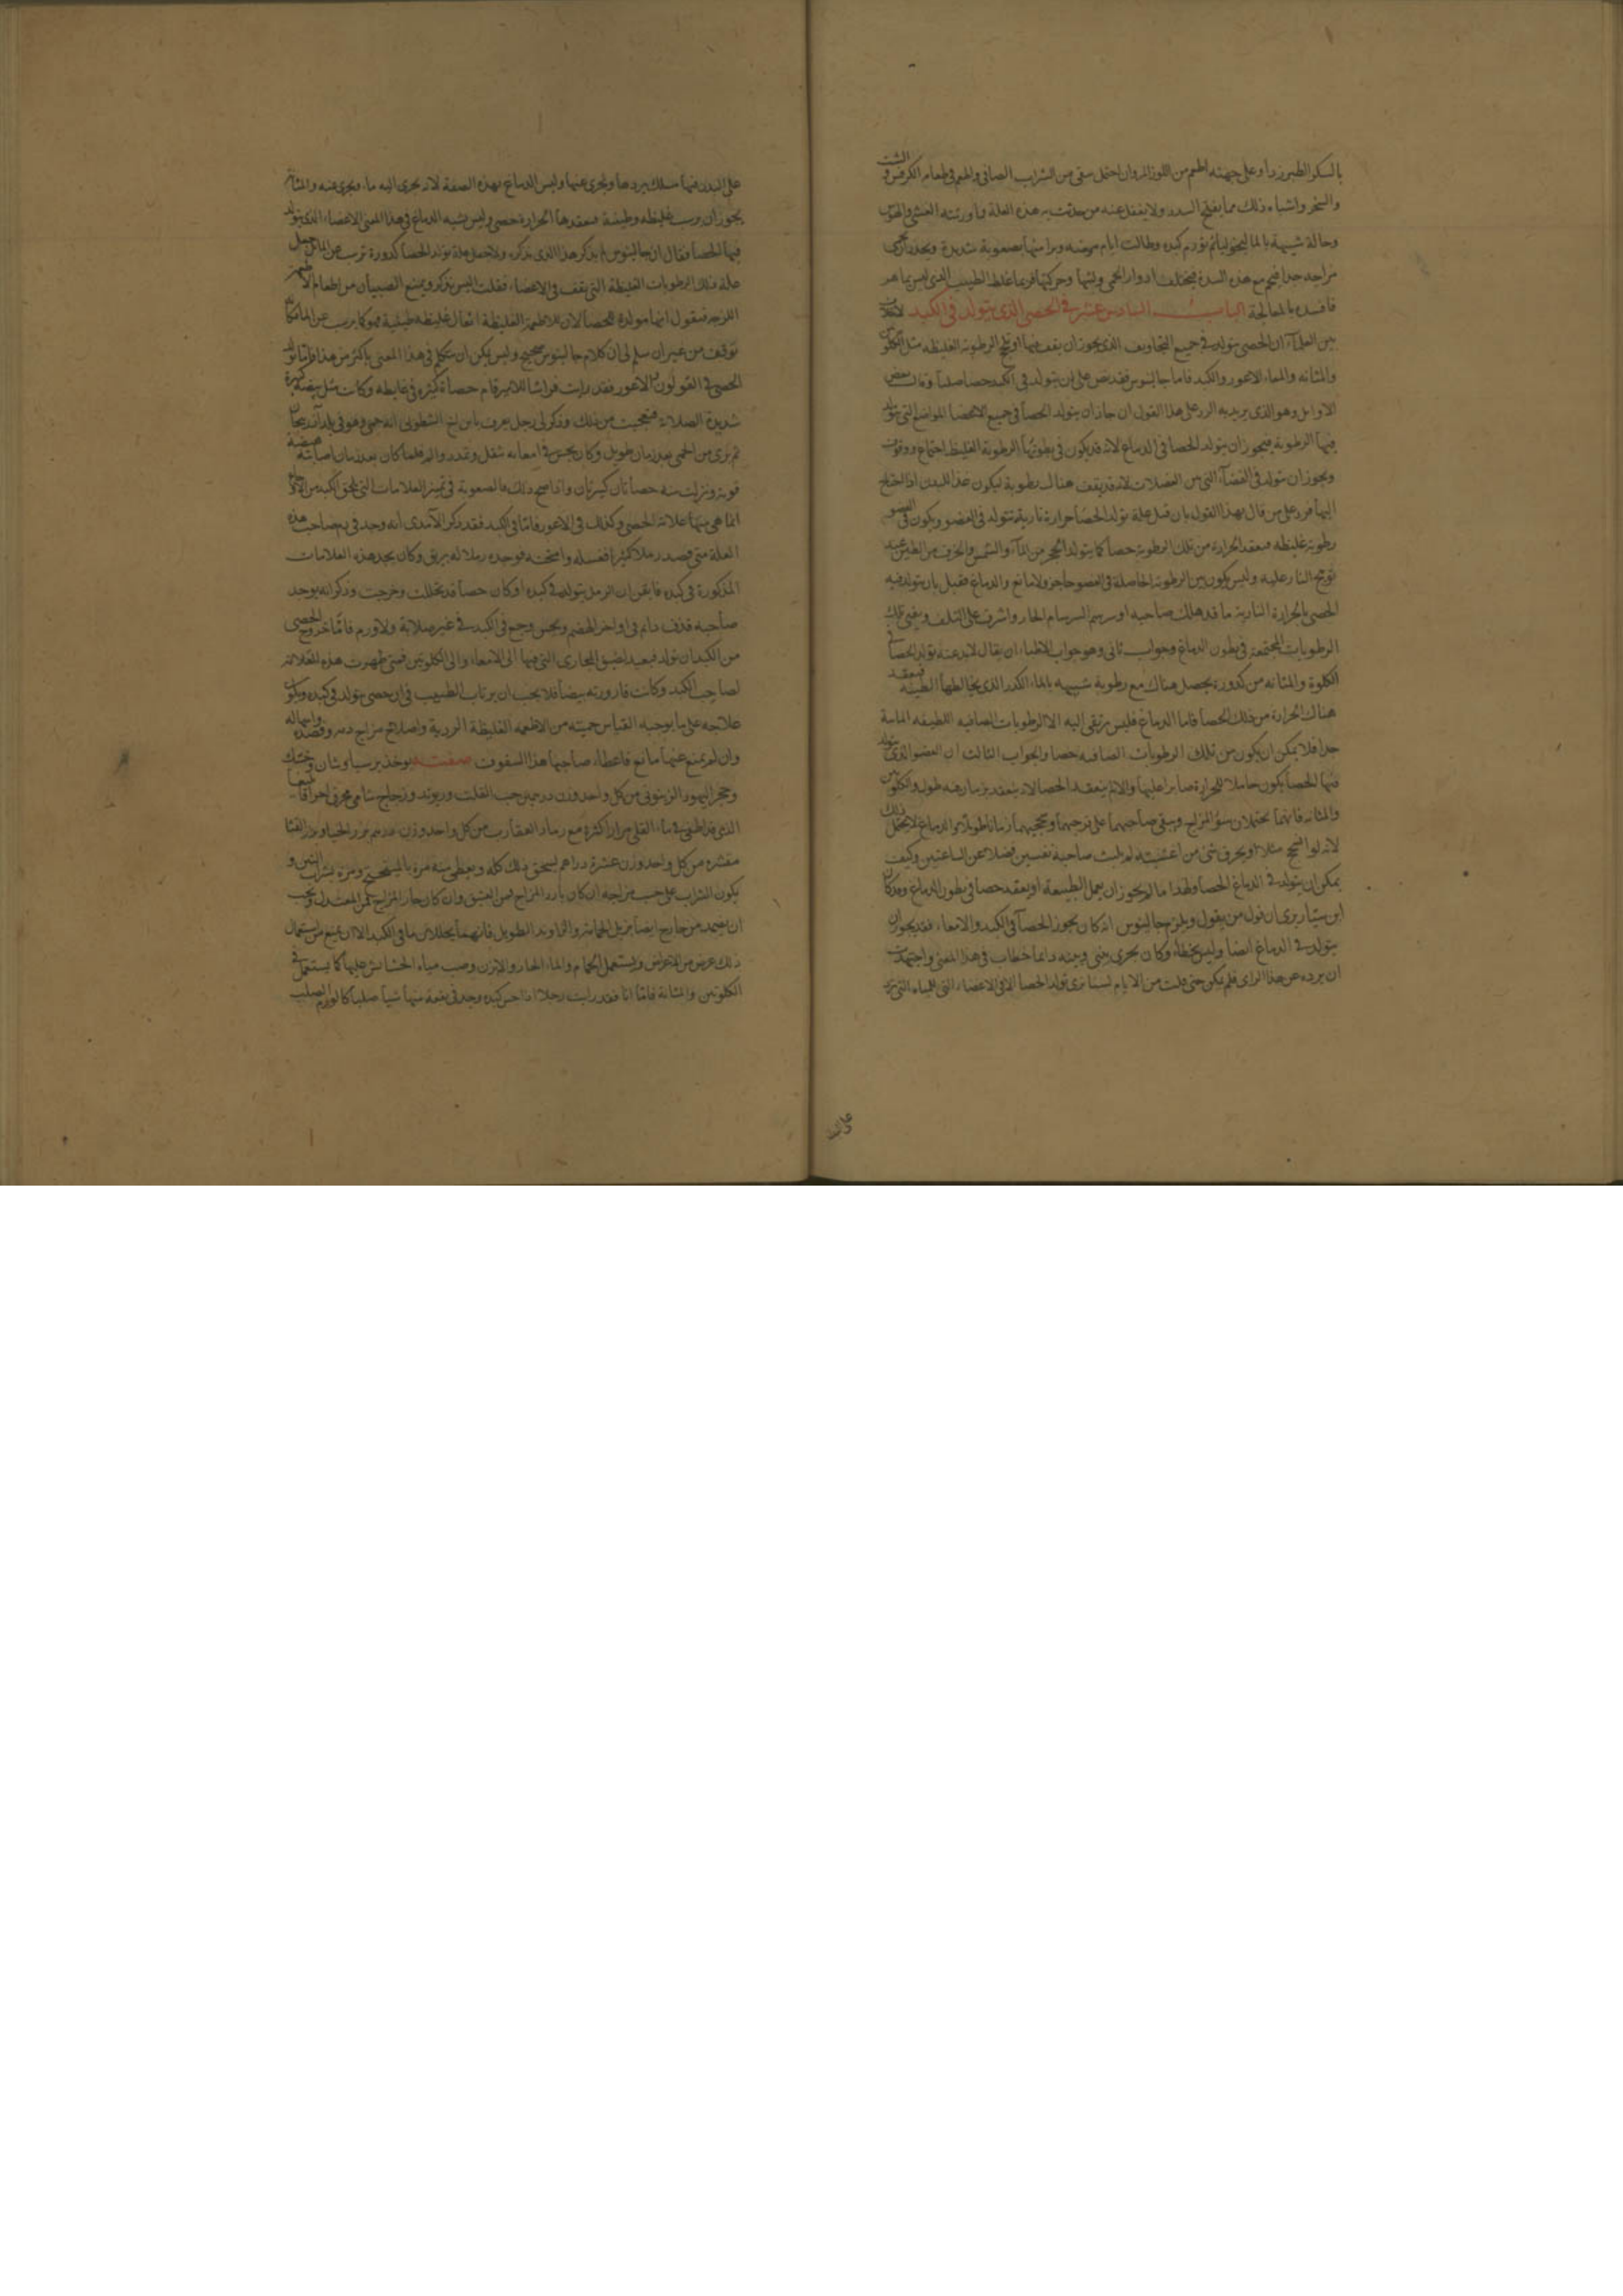 بالسكر الطبرزد او على جهته اطعم من اللوز المر وان احتمل سقى من الشراب الصافى والهم فى طعامه الكرفس والشبت
واشباه ذلك مما يفتح السدد ولا يغفل عنه من حدثت به هذه العلة واورثته الغشى
وحالة شبيهة بالماليخوليا ثم تورم كبده وطالت ايام مرضه وبرا منها بصعوبة شديدة
مع هذه السدة فيختلف ادوار الحمى ولبثها وحركتها فربما غلط الطبيب الغير الماهر
فافسده بالمعالجة الباب السادس عشر فى الحصى الذى يتولد فى الكبد لاخلاف
بين العلماء ان الحصى يتولد فى جميع التجاويف الذى يجوز ان يقف فيها الرطوبة الغليظة مثل الكلوتين
والمثانه والمعاء الاعور والكبد فاما جالينوس فقد نص على ان يتولد فى الكبد حصا صلبا وقال بعض
الاوايل وهو الذى يريد به الرد على هذا القول ان جاز ان يتولد الحصا فى جميع الاعضا المواضع التى يتولد
فيها الرطوبة فيجوز ان يتولد الحصا فى الدماغ لانه قد يكون فى بطونها الرطوبة الغليظة اجتماع ووقوف
ويجوز ان يتولد فى الفضآء التى بين العضلات لانه قد يقف هناك رطوبة ليكون غذا للبدن اذا احتاج
اليها فرد على من قال بهذا القول بان قيل علة تولد الحصا حرارة نارية تتولد فى العضو ويكون فى العضو
رطوبة غليظه فيعقد الحرارة من تلك الرطوبة حصا كما يتولد الحجر من المآء والشمس والخزف من الطين عند
النار عليه وليس يكون بين الرطوبة الحاصلة فى العضو حاجز ولا مانع والدماغ فقيل بان يتولد فيه
الحصى بالحرارة النارية ما قد هلك صاحبه او برسم السرسام الحار واشرف على التلف ويفنى تلك
الرطوبات المجتمعة فى بطون الدماغ وجواب ثانى وهو جواب الاطباء ان يقال لا بد عند تولد الحصا فى
الكلوة والمثانه من كدورة يحصل هناك مع رطوبة شبيهه بالماء الكدر الذى يخالطها الطينة فيعقد
هناك الحرارة من ذلك الحصا فاما الدماغ فليس يرتقى اليه الا الرطوبات الصافيه اللطيفه المائية
جدا فلا يمكن ان يكون من تلك الرطوبات الصافيه حصا والجواب الثالث ان العضو الذى يتولد
فيها الحصا يكون حاملا للحرارة صابرا عليها والا لم ينعقد الحصا لانه ينعقد بزمان طويل والكلوتين
والمثانه فانهما يحتملان سوء المزاج ويبقى صاحبهما على زمانا طويلا والدماغ لا يحتمل ذلك
لانه لو مثلا او يحرق شى من اغشيته لم يلبث صاحبه نفسين فضلا عن الساعتين وكيف
يمكن ان يتولد فى الدماغ الحصا ولهذا ما لم يجوز ان يعمل الطبيعة او يعقد حصا فى بطون الدماغ وقد كان
ابن سيار يرى ان قول من يقول ويلزم جالينوس انه كان يجوز الحصا فى الكبد والامعاء فقد يجوز ان
يتولد فى الدماغ ايضا وليس بخطاء وكان يجرى بينى وبينه دايما خطاب فى هذا المعنى واجتهدت
ان يرده عن هذا الراى فلم يمكن حتى قلت من الايام لسنا نرى تولد الحصا الا فى الاعضاء التى للمياه التى ترد
على البدن فيها مسلك يردها ويجرى عنها وليس الدماغ بهذه الصفة لانه يجرى اليه ماء ويجرى عنه والمثانة
يجوز ان يرسب غليظه وطينية فيعقدها الحرارة حصى وليس يشبه الدماغ فى هذا المعنى الاعضاء الذى يتولد
فيها الحصا فقال ان جالينوس لم يذكر هذا الذى تذكره ولا تحصل علة تولد الحصا كدورة ترسب عن الماء بل جعل
علة ذلك الرطوبات الغليظة التى يقف فى الاعضاء فقلت اليس يذكر ويمنع الصبيان من اطعام الاطعمة
اللزجه فيقول انها مولدة للحصا لان للاطعمة الغليظة اثفال غليظه طينية فهو كما يرسب عن الماء
توقف من غير ان سلم لى ان كلام جالينوس صحيح وليس يمكن ان يتكلم فى هذا المعنى باكثر من هذا فاما تولد
الحصى فى القولون والاعور فقد رايت فراشا للامير قام حصاة كثيره فى غايطه وكانت مثل بيضة كبيرة
شديدة الصلابة فتعجبت من ذلك وذكر لى رجل يعرف بابن الشطوى انه حمى وهو فى بلد آذربيجان
ثم برى من الحمى بعد زمان طويل وكان يحس فى امعائه بثقل وتمدد والم فلما كان بعد زمان اصابته هيضة
قوية ونزلت منه حصاتان كبيرتان واذا صح ذلك فالصعوبة فى تميز العلامات التى تلحق الكبد من الاوجاع
ايما هى منها علامة الحصى وكذلك فى الاعور فاما فى الكبد فقد ذكر الآمدى انه وجد فى دم صاحب هذه
العلة متى فصد رملا كثيرا فغسله وامتحنه فوجده رملا له بريق وكان يجد هذه العلامات
المذكورة فى كبده فايقن ان الرمل يتولد فى كبده او كان حصا قد تحللت وخرجت وذكر انه يوجد
صاحبه قذف دايم فى اواخر الهضم ويحس وجع فى الكبد فى غير صلابة ولا ورم فاما خروج الحصى
من الكبد ان تولد فبعيد لضيق المجارى التى فيها الى الامعاء والى الكلوتين فمتى ظهرت هذه العلامة
لصاحب الكبد وكانت قارورته بيضا فلا يجب ان يرتاب الطبيب فى ان حصى يتولد فى كبده ويكون
علاجه على ما يوجبه القياس حميته من الاطعمه الغليظة الردية واصلاح مزاج دمه وفصده واسهاله
وان لم يمنع عنهما مانع فاعطاء صاحبها هذا السفوف صفته يوخذ برسياوشان
وحجر اليهود الزيتونى من كل واحد وزن درهمين حب القلت وريوند وزجاج شامى محرق احراقا
الذى قد اطفى فى ماء القلى مرارا كثيرة مع رماد العقارب من كل واحد وزن درهم بزر الخيار وبزر القثا
مقشره من كل واحد وزن عشرة دراهم يسحق ذلك كله ويعطى منه مرة بالسكنجبين ومرة بشراب
يكون الشراب على حسب مزاجه ان كان بارد المزاج فمن العتيق وان كان حار المزاج فمن المعتدل ويجب
ان يضمد من خارج ايضا والزراوند الطويل فانهما يحللان ما فى الكبد الا ان يمنع من استعمال
ذلك عرض من الاعراض ويستعمل الحمام والماء الحار والابزن وصب مياه الحشايش عليها كما يستعمل فى
الكلوتين والمثانة فاما انا فقد رايت رجلا اذا جس كبده وجد فى بقعة منها شيا صلبا كالورم الصلب